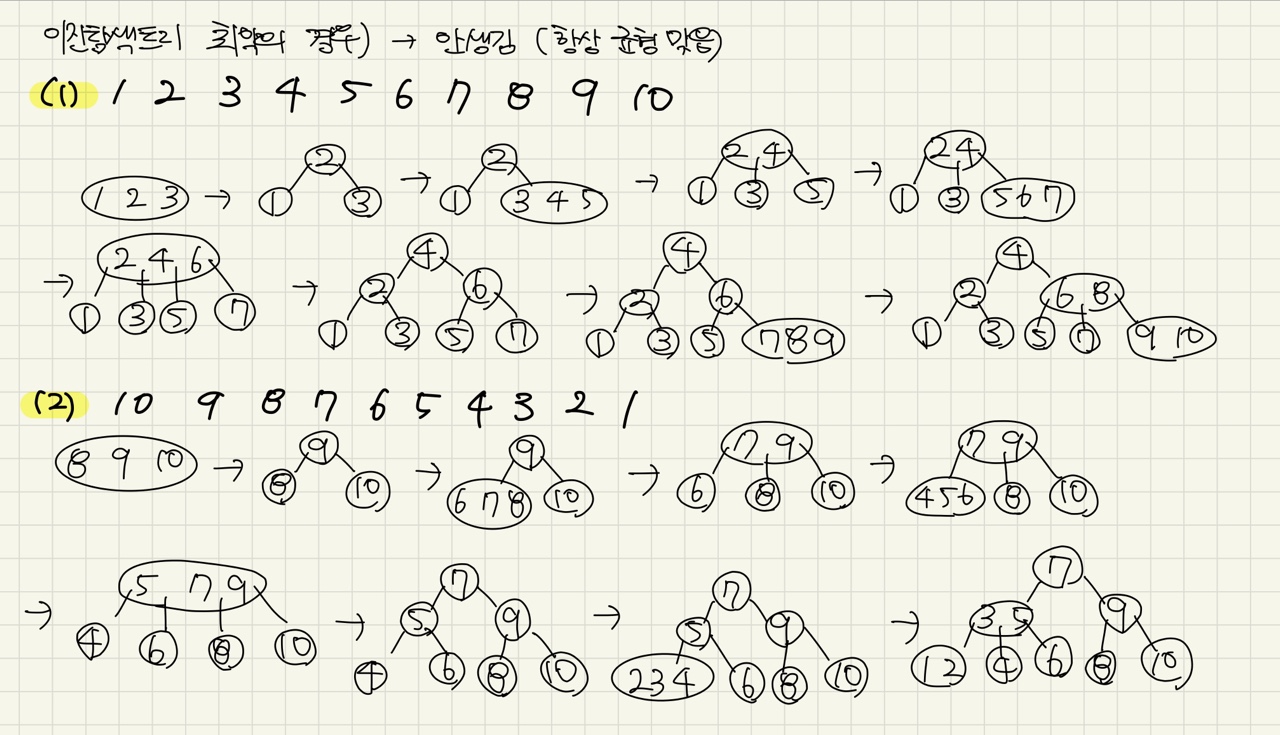 이진탐색트리 최악의 경우) → 안생김 (항상 균형 맞음)
(1) 1 2 3 4 5 6 7 8 9 10
1 2 3 → 2 1 3 → 2 1 3 4 5 → 2 4 1 3 5 → 2 4 1 3 5 6 7
→ 2 4 6 1 3 5 7 → 4 2 6 1 3 5 7 → 4 2 6 1 3 5 7 8 9 → 4 2 6 8 1 3 5 7 9 10
(2) 10 9 8 7 6 5 4 3 2 1
8 9 10 → 9 8 10 → 9 6 7 8 10 → 7 9 6 8 10 → 7 9 4 5 6 8 10
→ 5 7 9 4 6 8 10 → 7 5 9 4 6 8 10 → 7 5 9 2 3 4 6 8 10 → 7 3 5 9 1 2 4 6 8 10